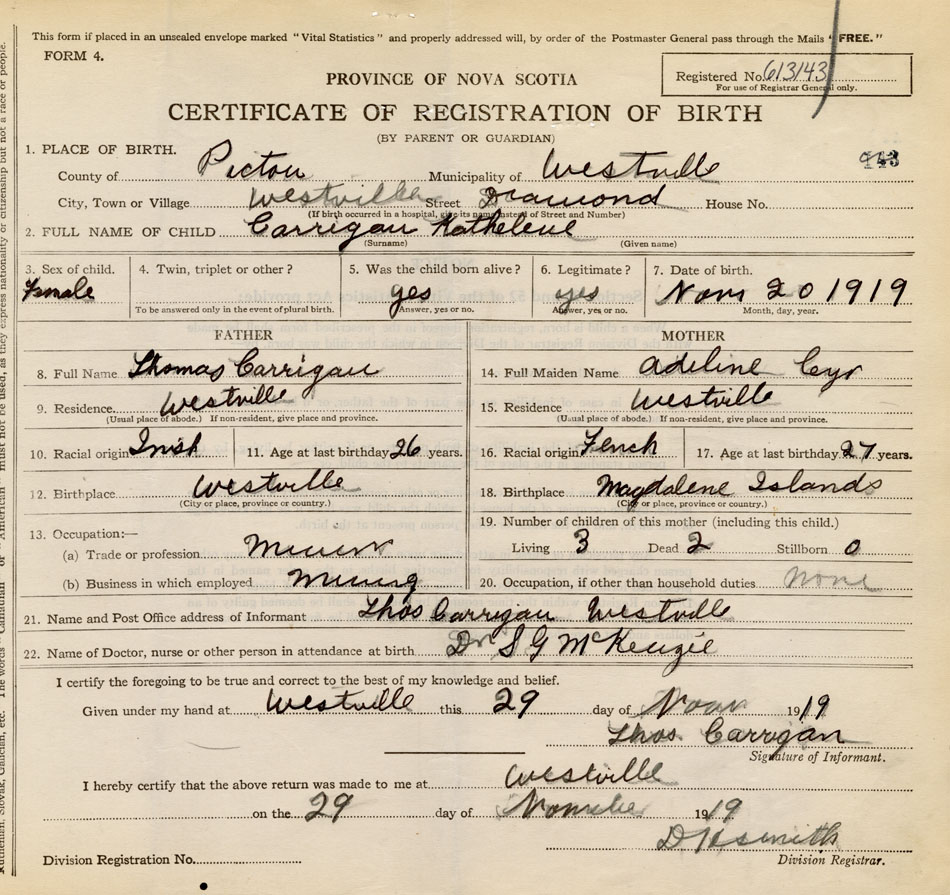 This form if placed in an unsealed envelope marked "Vital Statistics" and properly addressed will, by order of the Postmaster General pass through the Mails "FREE."
FORM 4.
Registered No. 613143
For use of Registrar General only.
PROVINCE OF NOVA SCOTIA
CERTIFICATE OF REGISTRATION OF BIRTH
(BY PARENT OR GUARDIAN)
943
1. PLACE OF BIRTH.
County of Pictou Municipality of Westville
City, Town or Village Westville Street Diamond House No.
(If birth occurred in a hospital, give its name instead of Street and Number)
2. FULL NAME OF CHILD Carrigan Kathelene
(Surname) (Given name)
3. Sex of child. 4. Twin, triplet or other? 5. Was the child born alive? 6. Legitimate? 7. Date of birth.
Female yes yes 20 1919
To be answered only in the event of plural birth. Answer, yes or no. Answer, yes or no. Month, day, year.
FATHER MOTHER
8. Full Name Thomas Carrigan 14. Full Maiden Name Adeline Cyr
9. Residence Westville 15. Residence Westville
(Usual place of abode.) If non-resident, give place and province. (Usual place of abode.) If non-resident, give place and province.
10. Racial origin Irish 11. Age at last birthday 26 years. 16. Racial origin Fench 17. Age at last birthday 27 years.
12. Birthplace Westville 18. Birthplace Magdalene Islands
(City or place, province or country.) (City or place, province or country.)
13. Occupation:— 19. Number of children of this mother (including this child.)
(a) Trade or profession Living 3 Dead 2 Stillborn 0
(b) Business in which employed Mining 20. Occupation, if other than household duties None
21. Name and Post Office address of Informant Thos Carrigan Westville
22. Name of Doctor, nurse or other person in attendance at birth Dr S G McKenzie
I certify the foregoing to be true and correct to the best of my knowledge and belief.
Given under my hand at Westville this 29 day of 1919
Thos. Carrigan
Signature of Informant.
I hereby certify that the above return was made to me at Westville
on the 29 day of 1919
Smith
Division Registration No. Division Registrar.